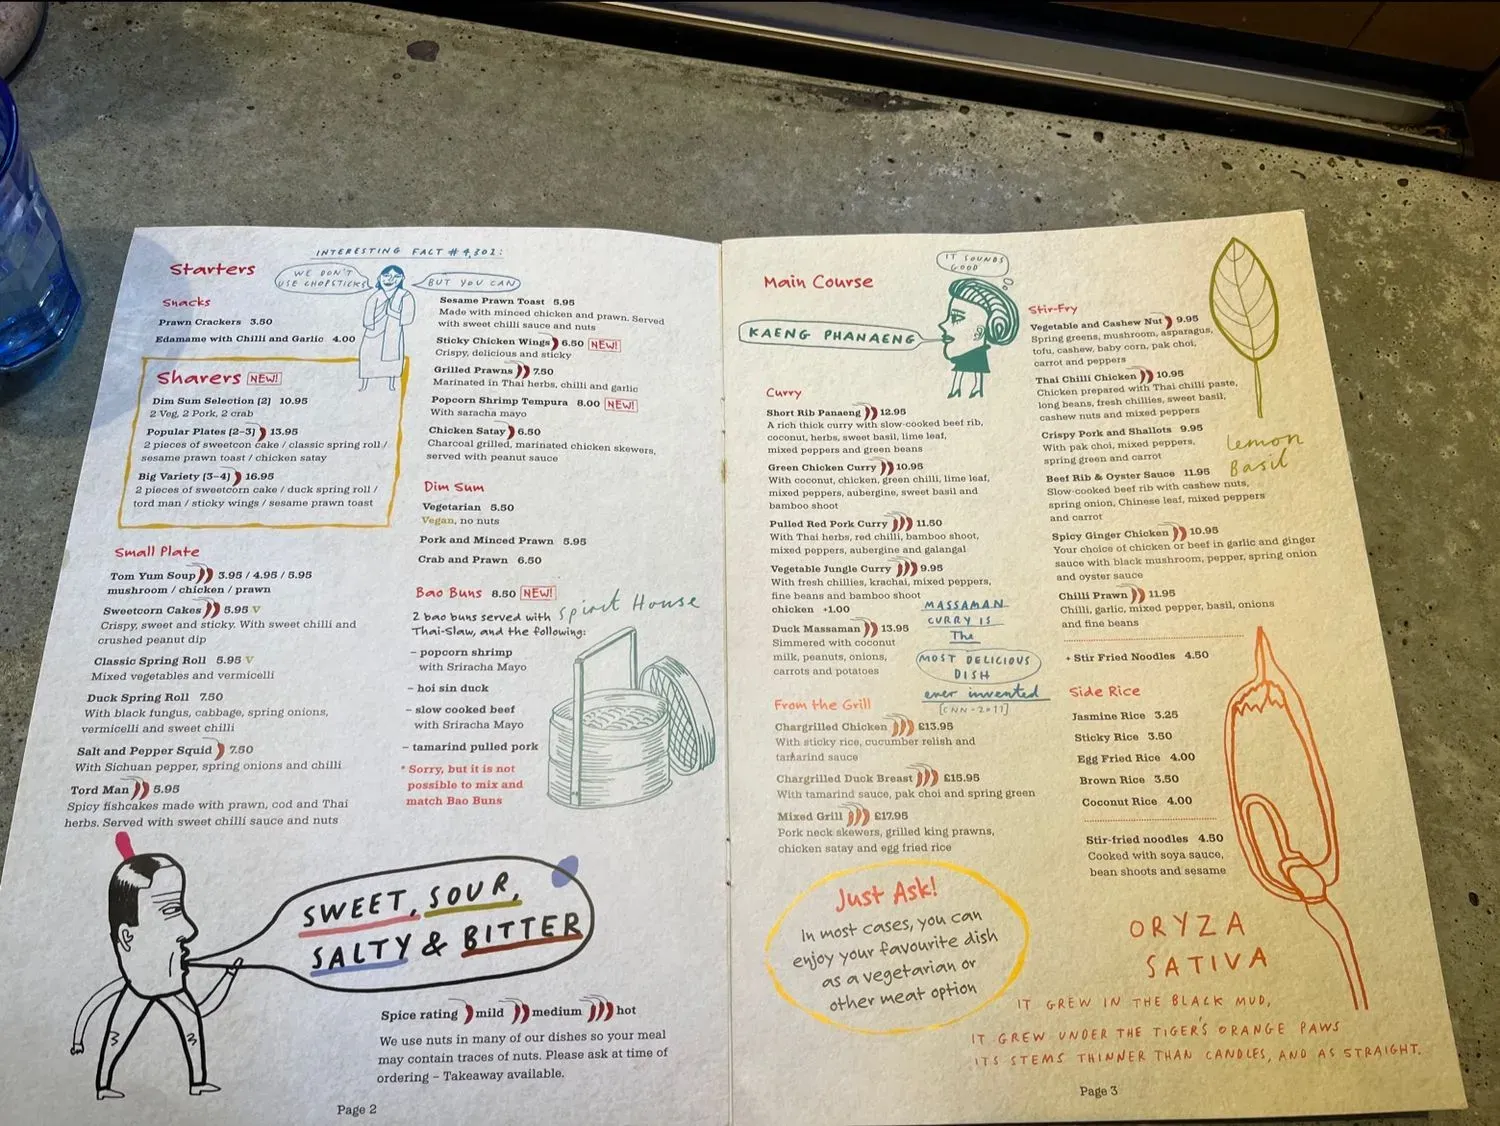 INTERESTING FACT #4,302:
WE DON'T
USE CHOPSTICKS
BUT YOU CAN
Starters
Snacks
Prawn Crackers 3.50
Edamame with Chilli and Garlic 4.00
Sharers NEW!
Dim Sum Selection (2) 10.95
2 Veg, 2 Pork, 2 crab
Popular Plates (2-3) 13.95
2 pieces of sweetcon cake / classic spring roll /
sesame prawn toast / chicken satay
Big Variety (3-4) 16.95
2 pieces of sweetcorn cake / duck spring roll /
tord man / sticky wings / sesame prawn toast
Small Plate
Tom Yum Soup 3.95 / 4.95 / 5.95
mushroom / chicken / prawn
Sweetcorn Cakes 5.95 V
Crispy, sweet and sticky. With sweet chilli and
crushed peanut dip
Classic Spring Roll 5.95 V
Mixed vegetables and vermicelli
Duck Spring Roll 7.50
With black fungus, cabbage, spring onions,
vermicelli and sweet chilli
Salt and Pepper Squid 7.50
With Sichuan pepper, spring onions and chilli
Tord Man 5.95
Spicy fishcakes made with prawn, cod and Thai
herbs. Served with sweet chilli sauce and nuts
Sesame Prawn Toast 5.95
Made with minced chicken and prawn. Served
with sweet chilli sauce and nuts
Sticky Chicken Wings 6.50 NEW!
Crispy, delicious and sticky
Grilled Prawns 7.50
Marinated in Thai herbs, chilli and garlic
Popcorn Shrimp Tempura 8.00 NEW!
With saracha mayo
Chicken Satay 6.50
Charcoal grilled, marinated chicken skewers,
served with peanut sauce
Dim Sum
Vegetarian 5.50
Vegan, no nuts
Pork and Minced Prawn 5.95
Crab and Prawn 6.50
Bao Buns 8.50 NEW!
2 bao buns served with
Thai-Slaw, and the following:
– popcorn shrimp
with Sriracha Mayo
– hoi sin duck
– slow cooked beef
with Sriracha Mayo
– tamarind pulled pork
* Sorry, but it is not
possible to mix and
match Bao Buns
Spirit House
SWEET, SOUR,
SALTY & BITTER
Spice rating mild medium hot
We use nuts in many of our dishes so your meal
may contain traces of nuts. Please ask at time of
ordering – Takeaway available.
Page 2
Main Course
IT SOUNDS
GOOD
KAENG PHANAENG
Curry
Short Rib Panaeng 12.95
A rich thick curry with slow-cooked beef rib,
coconut, herbs, sweet basil, lime leaf,
mixed peppers and green beans
Green Chicken Curry 10.95
With coconut, chicken, green chilli, lime leaf,
mixed peppers, aubergine, sweet basil and
bamboo shoot
Pulled Red Pork Curry 11.50
With Thai herbs, red chilli, bamboo shoot,
mixed peppers, aubergine and galangal
Vegetable Jungle Curry 9.95
With fresh chillies, krachai, mixed peppers,
fine beans and bamboo shoot
chicken +1.00
Duck Massaman 13.95
Simmered with coconut
milk, peanuts, onions,
carrots and potatoes
MASSAMAN
CURRY IS
The
MOST DELICIOUS
DISH
ever invented
[CNN-2011]
From the Grill
Chargrilled Chicken £13.95
With sticky rice, cucumber relish and
tamarind sauce
Chargrilled Duck Breast £15.95
With tamarind sauce, pak choi and spring green
Mixed Grill £17.95
Pork neck skewers, grilled king prawns,
chicken satay and egg fried rice
Just Ask!
In most cases, you can
enjoy your favourite dish
as a vegetarian or
other meat option
Stir-Fry
Vegetable and Cashew Nut 9.95
Spring greens, mushroom, asparagus,
tofu, cashew, baby corn, pak choi,
carrot and peppers
Thai Chilli Chicken 10.95
Chicken prepared with Thai chilli paste,
long beans, fresh chillies, sweet basil,
cashew nuts and mixed peppers
Crispy Pork and Shallots 9.95
With pak choi, mixed peppers,
spring green and carrot
Beef Rib & Oyster Sauce 11.95
Slow-cooked beef rib with cashew nuts,
spring onion, Chinese leaf, mixed peppers
and carrot
Spicy Ginger Chicken 10.95
Your choice of chicken or beef in garlic and ginger
sauce with black mushroom, pepper, spring onion
and oyster sauce
Chilli Prawn 11.95
Chilli, garlic, mixed pepper, basil, onions
and fine beans
+ Stir Fried Noodles 4.50
Side Rice
Jasmine Rice 3.25
Sticky Rice 3.50
Egg Fried Rice 4.00
Brown Rice 3.50
Coconut Rice 4.00
Stir-fried noodles 4.50
Cooked with soya sauce,
bean shoots and sesame
Lemon
Basil
ORYZA
SATIVA
IT GREW IN THE BLACK MUD,
IT GREW UNDER THE TIGER'S ORANGE PAWS
ITS STEMS THINNER THAN CANDLES, AND AS STRAIGHT.
Page 3